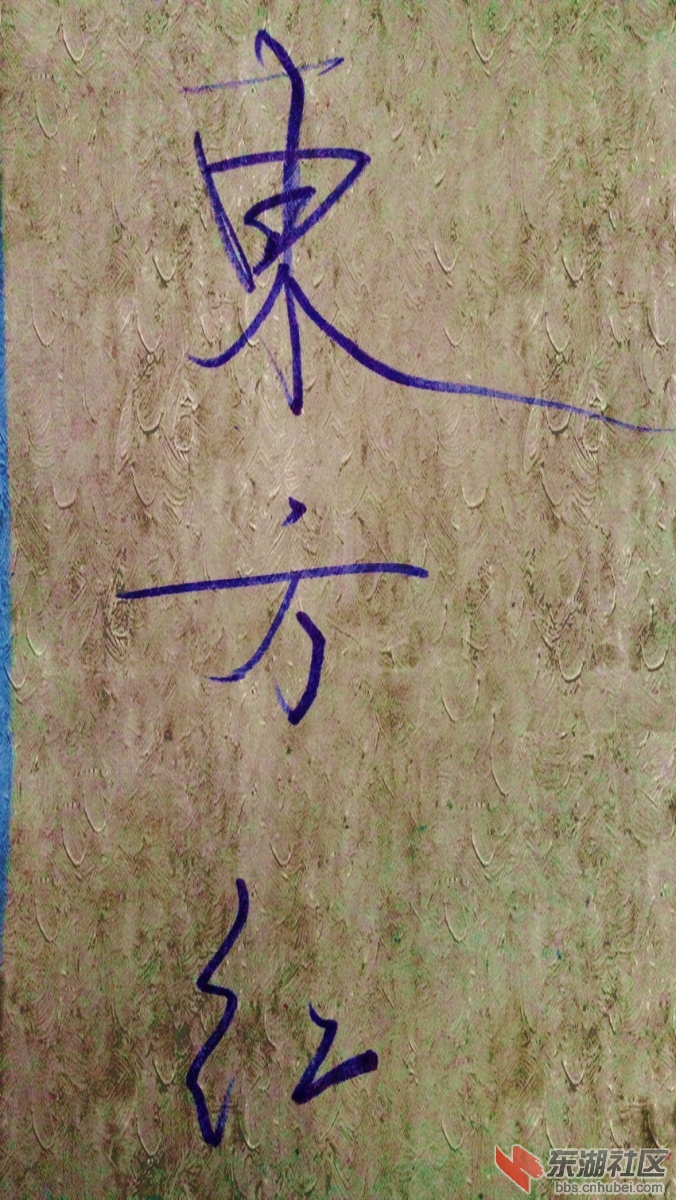 東方红
东湖社区
bbs.cnhubei.com